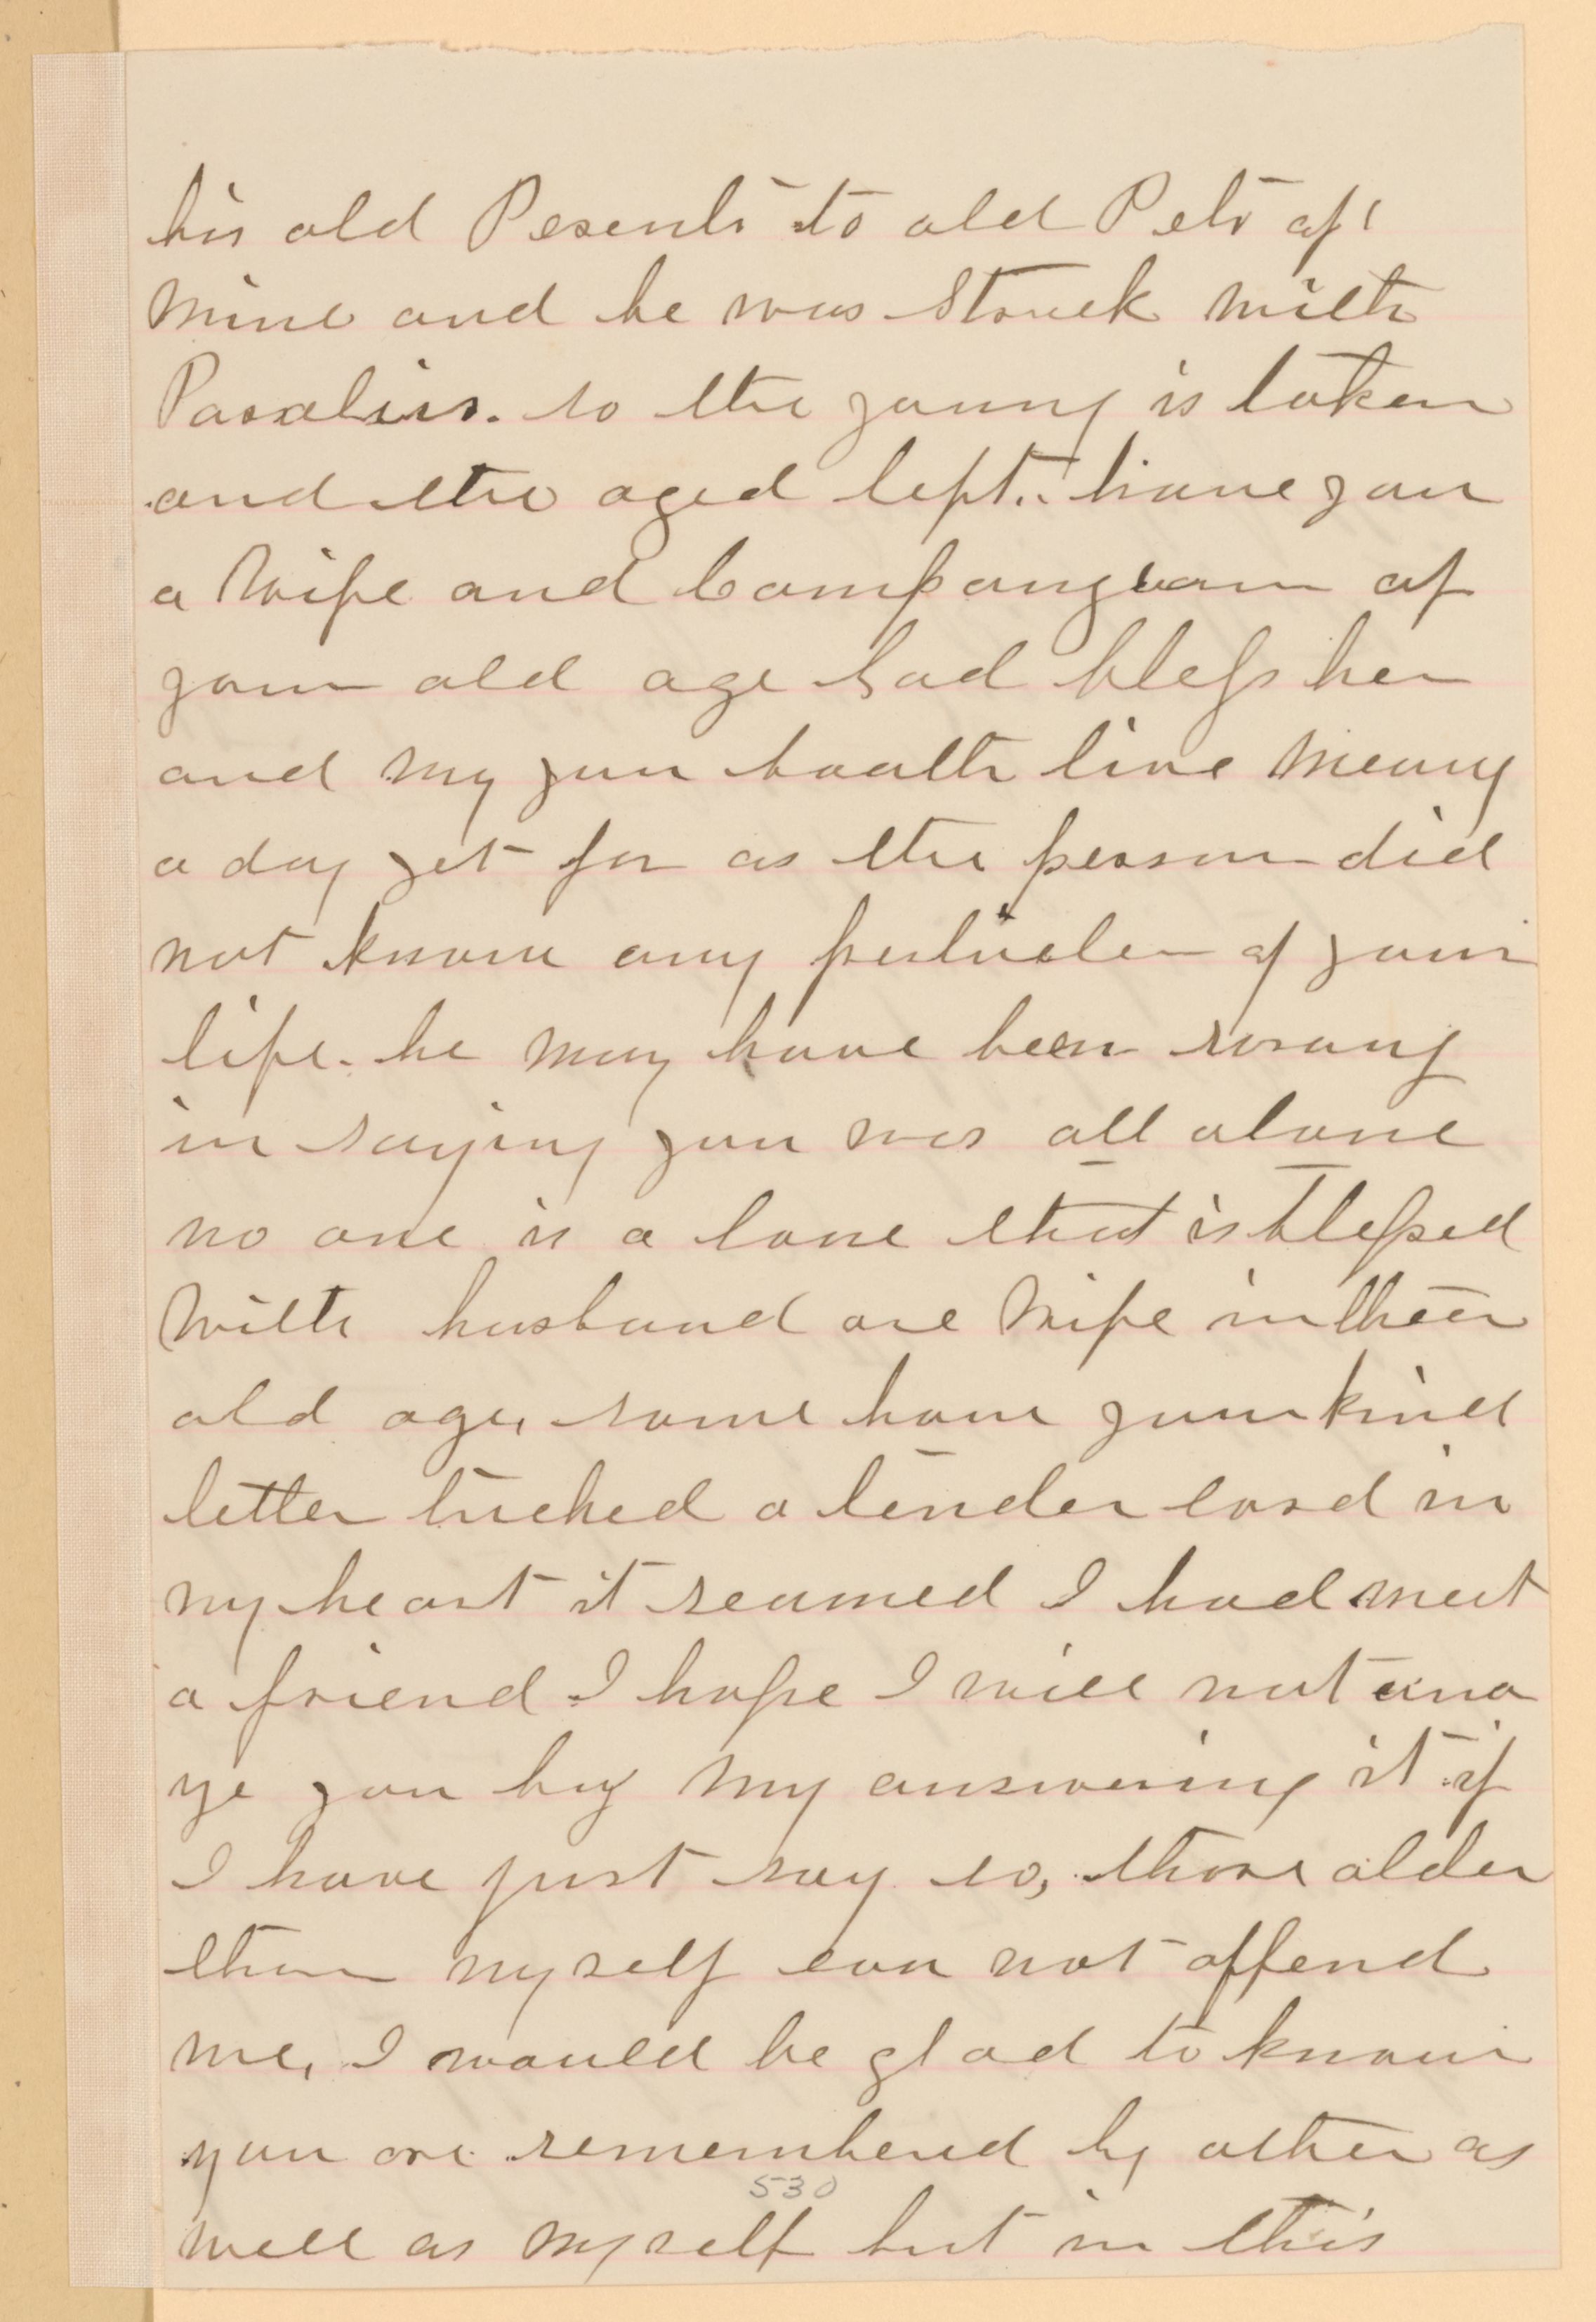 his old Pesents to old Pets of
mine and he was Struck with
Paralisis. so the young is taken
and the aged left. have you
a Wife and Companyeon of
your old age God bless her
and my you boath live meany
a day yet for as the person did
not know any perticler of your
life. he may have been rwong
in saying you was all alone
no one is a lone that is blessed
With husband are Wife in their
old age, some how your kind
letter tuched a tender cord in
my heart it seamed I had meet
a friend I hope I will not ana
ye you by my answering it if
I have just say so, those older
than myself can not offend
me, I would be glad to know
you are remembered by other as
530
well as myself but in this